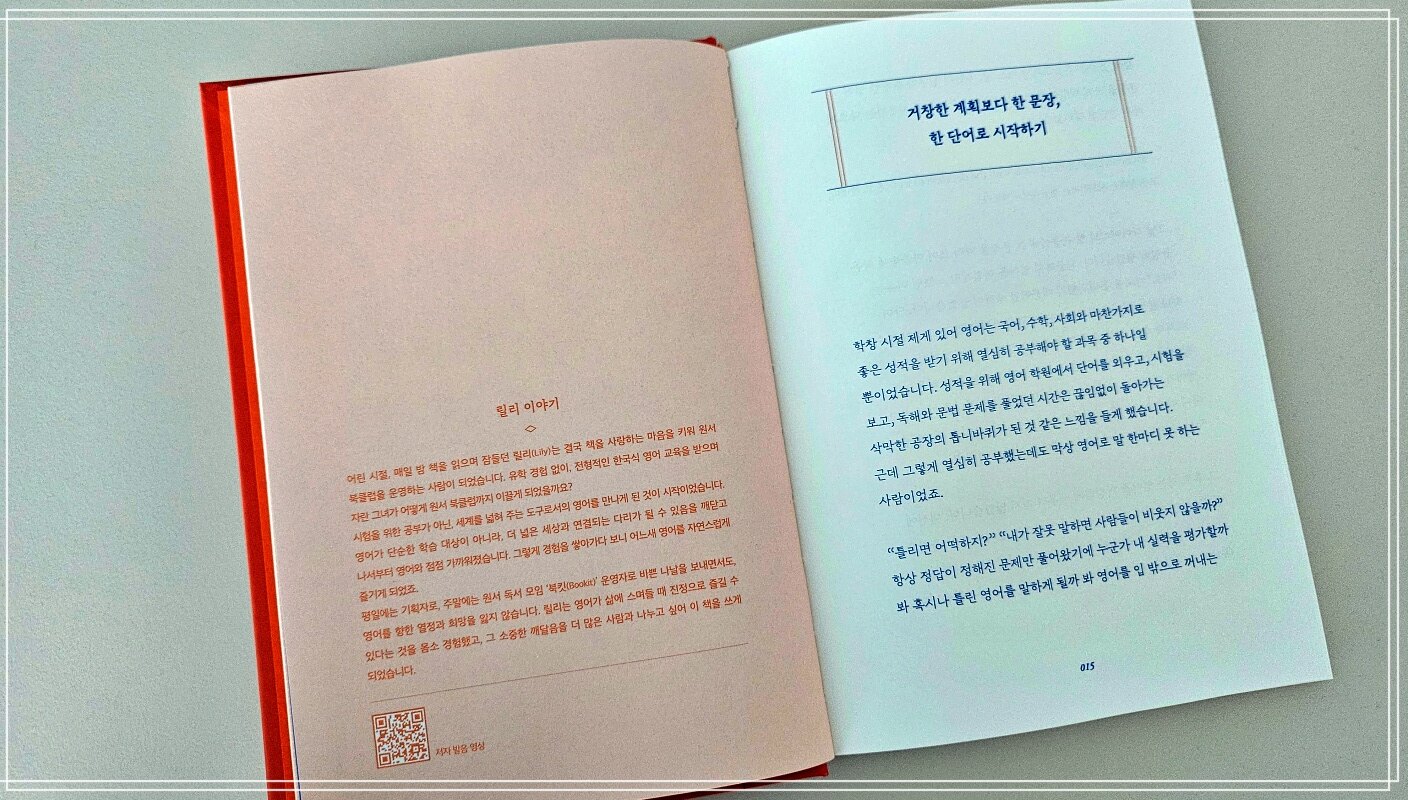 릴리 이야기
어린 시절, 매일 밤 책을 읽으며 잠들던 릴리(Lily)는 결국 책을 사랑하는 마음을 키워 원서
북클럽을 운영하는 사람이 되었습니다. 유학 경험 없이, 전형적인 한국식 영어 교육을 받으며
자란 그녀가 어떻게 원서 북클럽까지 이끌게 되었을까요?
시험을 위한 공부가 아닌, 세계를 넓혀 주는 도구로서의 영어를 만나게 된 것이 시작이었습니다.
영어가 단순한 학습 대상이 아니라, 더 넓은 세상과 연결되는 다리가 될 수 있음을 깨닫고
나서부터 영어와 점점 가까워졌습니다. 그렇게 경험을 쌓아가다 보니 어느새 영어를 자연스럽게
즐기게 되었죠.
평일에는 기획자로, 주말에는 원서 독서 모임 ‘북킷(Bookit)’ 운영자로 바쁜 나날을 보내면서도,
영어를 향한 열정과 희망을 잃지 않습니다. 릴리는 영어가 삶에 스며들 때 진정으로 즐길 수
있다는 것을 몸소 경험했고, 그 소중한 깨달음을 더 많은 사람과 나누고 싶어 이 책을 쓰게
되었습니다.
저자 발음 영상
거창한 계획보다 한 문장,
한 단어로 시작하기
학창 시절 제게 있어 영어는 국어, 수학, 사회와 마찬가지로
좋은 성적을 받기 위해 열심히 공부해야 할 과목 중 하나일
뿐이었습니다. 성적을 위해 영어 학원에서 단어를 외우고, 시험을
보고, 독해와 문법 문제를 풀었던 시간은 끊임없이 돌아가는
삭막한 공장의 톱니바퀴가 된 것 같은 느낌을 들게 했습니다.
근데 그렇게 열심히 공부했는데도 막상 영어로 말 한마디 못 하는
사람이었죠.
“틀리면 어떡하지?” “내가 잘못 말하면 사람들이 비웃지 않을까?”
항상 정답이 정해진 문제만 풀어왔기에 누군가 내 실력을 평가할까
봐 혹시나 틀린 영어를 말하게 될까 봐 영어를 입 밖으로 꺼내는
015